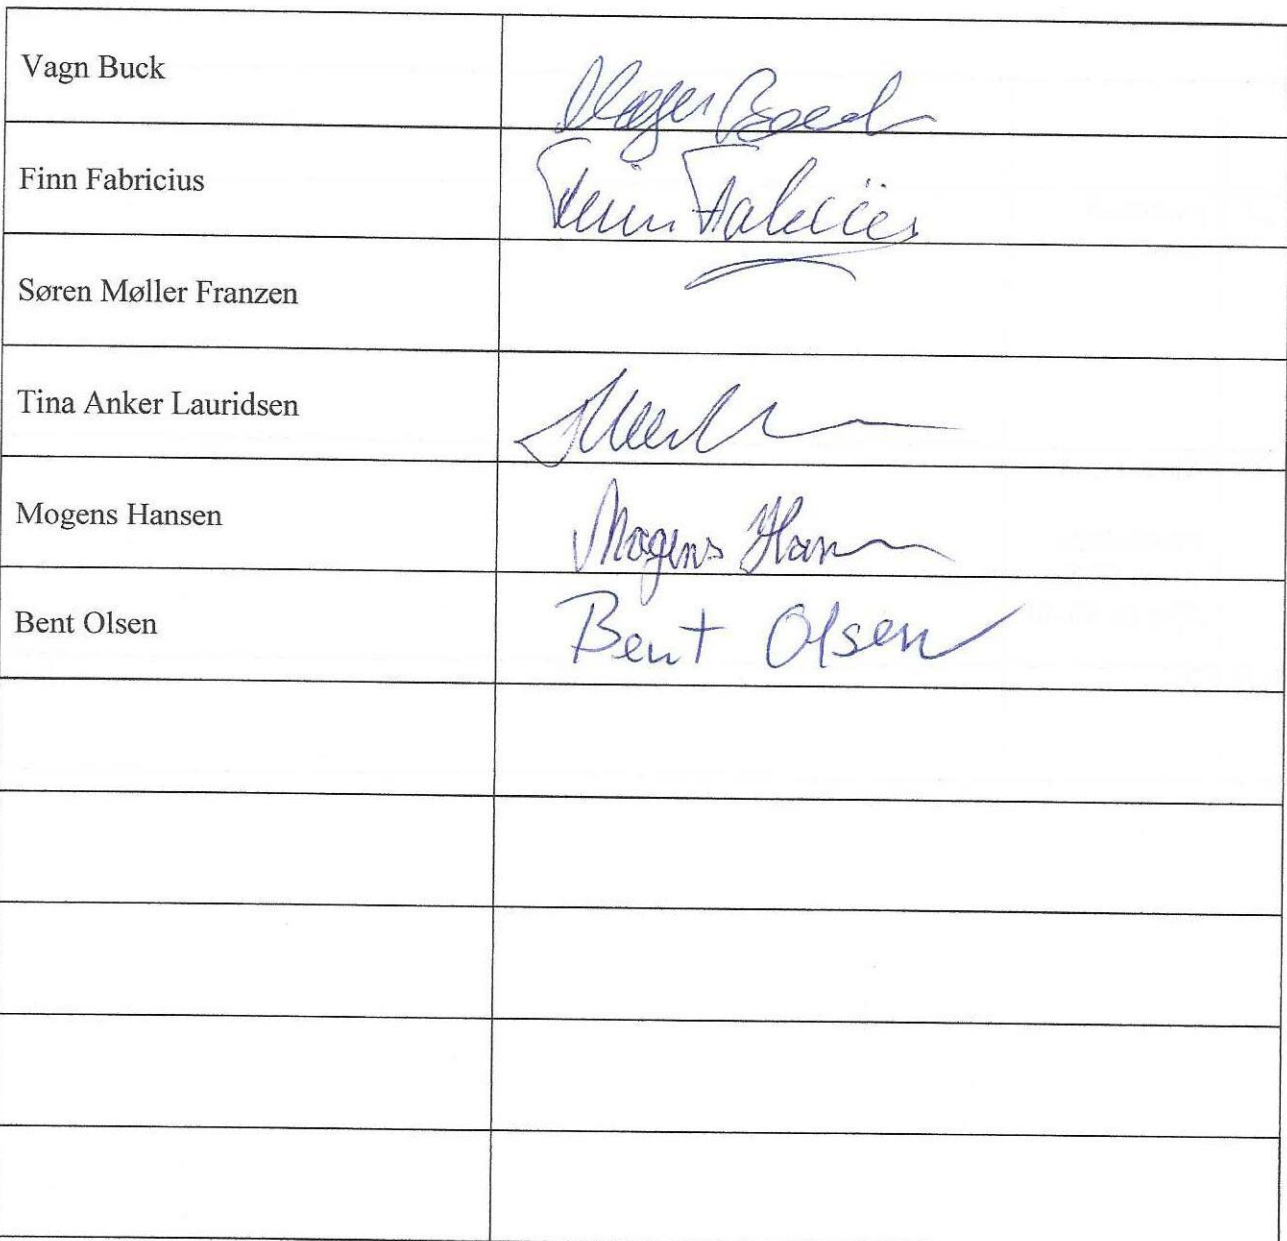 Vagn Buck
Finn Fabricius
Finn Fabricius
Søren Møller Franzen
Tina Anker Lauridsen
Mogens Hansen
Mogens Hansen
Bent Olsen
Bent Olsen